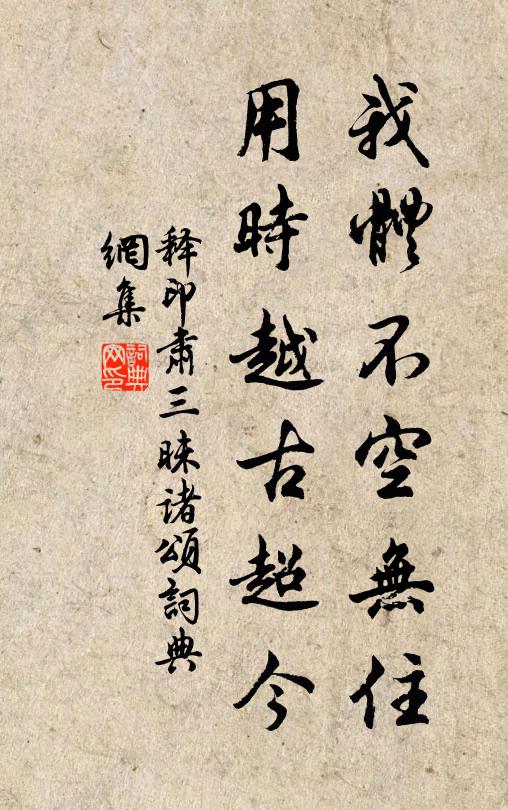 我體不空無住
用時越古超今
释印肃三昧诸頌詞典
網集
詞典
网印